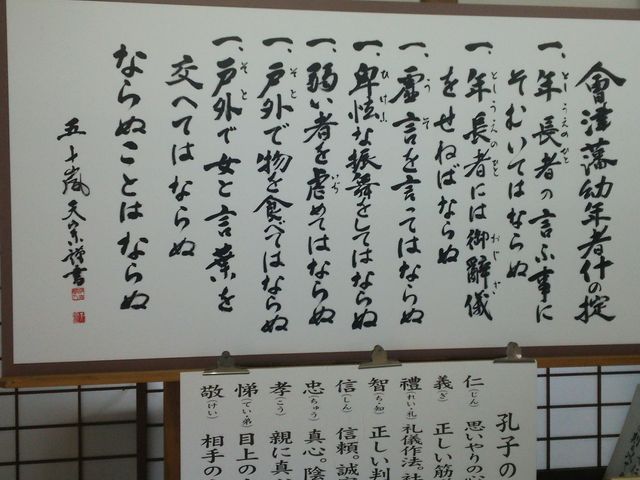 會津藩幼年者什の掟
一、年長者の言ふ事に
としうえのひと
そむいてはならぬ
一、年長者には御辭儀
としうえのひと おじぎ
をせねばならぬ
一、虚言を言ってはならぬ
うそ
一、卑怯な振舞をしてはならぬ
ひきょう ふるまい
一、弱い者を虐めてはならぬ
いぢ
一、戸外で物を食べてはならぬ
そと
一、戸外で女と言葉を
そと
交へてはならぬ
ならぬことはならぬ
五十嵐天宗謹書
孔子の
仁(じん) 思いやりの
義(ぎ) 正しい筋
禮(れい・礼) 礼儀作法。社
智(ち・知) 正しい判
信(しん) 信頼。誠
忠(ちゅう) 真心。陰
孝(こう) 親に真
悌(てい・弟) 目上の
敬(けい) 相手の